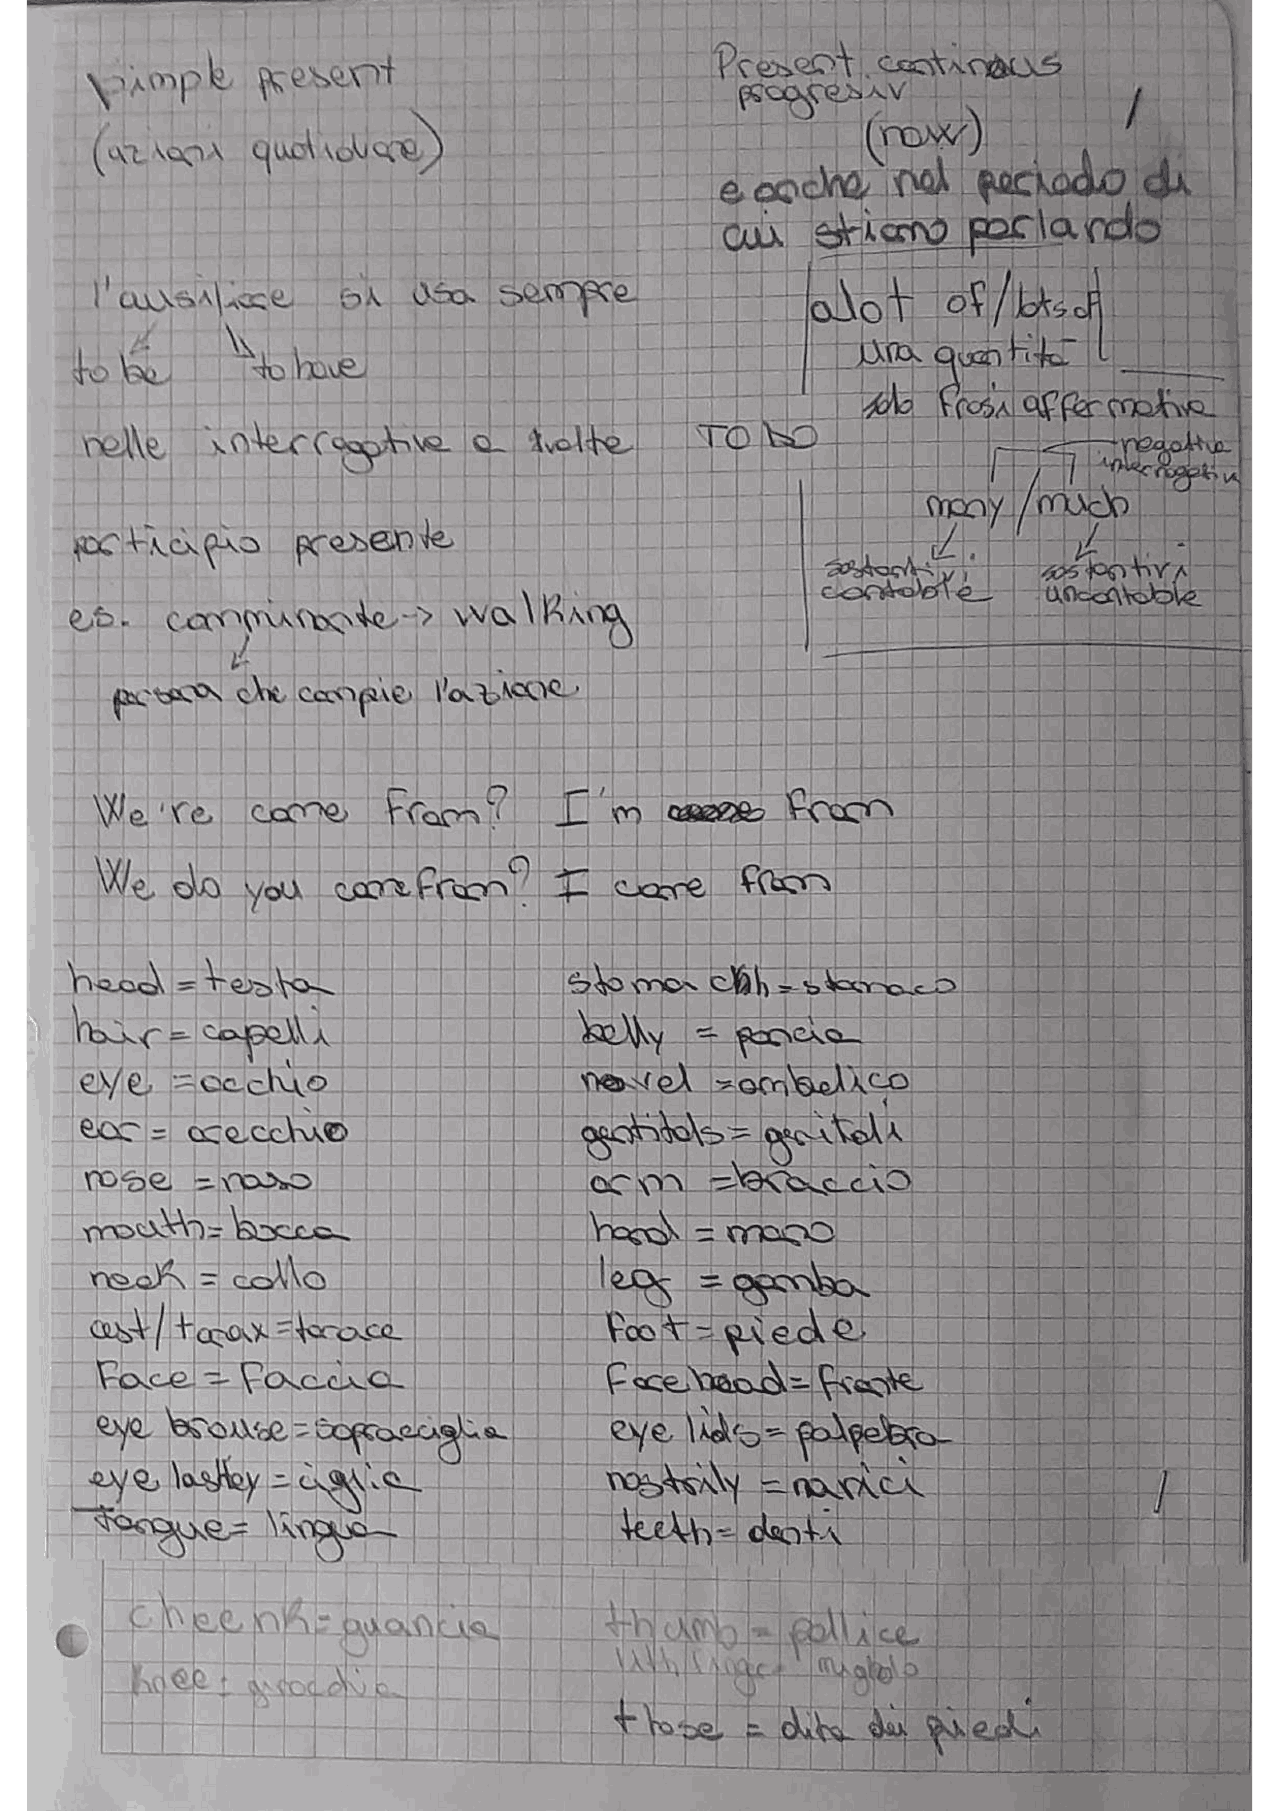 simple present
(azioni quotidiane)
Present continous
progresiv
(now)
e anche nel periodo di
cui stiamo parlando
l'ausiliare si usa sempre
to be to have
nelle interrogative a volte TO DO
participio presente
es. camminante -> walking
persona che compie l'azione
alot of/lots of
una quantità
solo frasi affermative
negative
interrogativ
many / much
sostantivi contabile
sostantivi uncontable
We're come from? I'm from
We do you come from? I come from
head = testa
hair = capelli
eye = occhio
ear = orecchio
nose = naso
mouth = bocca
neek = collo
cest/torax = torace
Face = Faccia
eye brouse = sopracciglia
eye lashey = ciglia
Tongue = lingua
stomach = stomaco
belly = pancia
navel = ombelico
gentitals = genitali
arm = braccio
hand = mano
leg = gamba
Foot = piede
Forehead = fronte
eye lids = palpebra
nostrily = narici
teeth = denti
cheenk = guancia
knee = ginocchia
thumb = pollice
mignolo
those = dita dei piedi